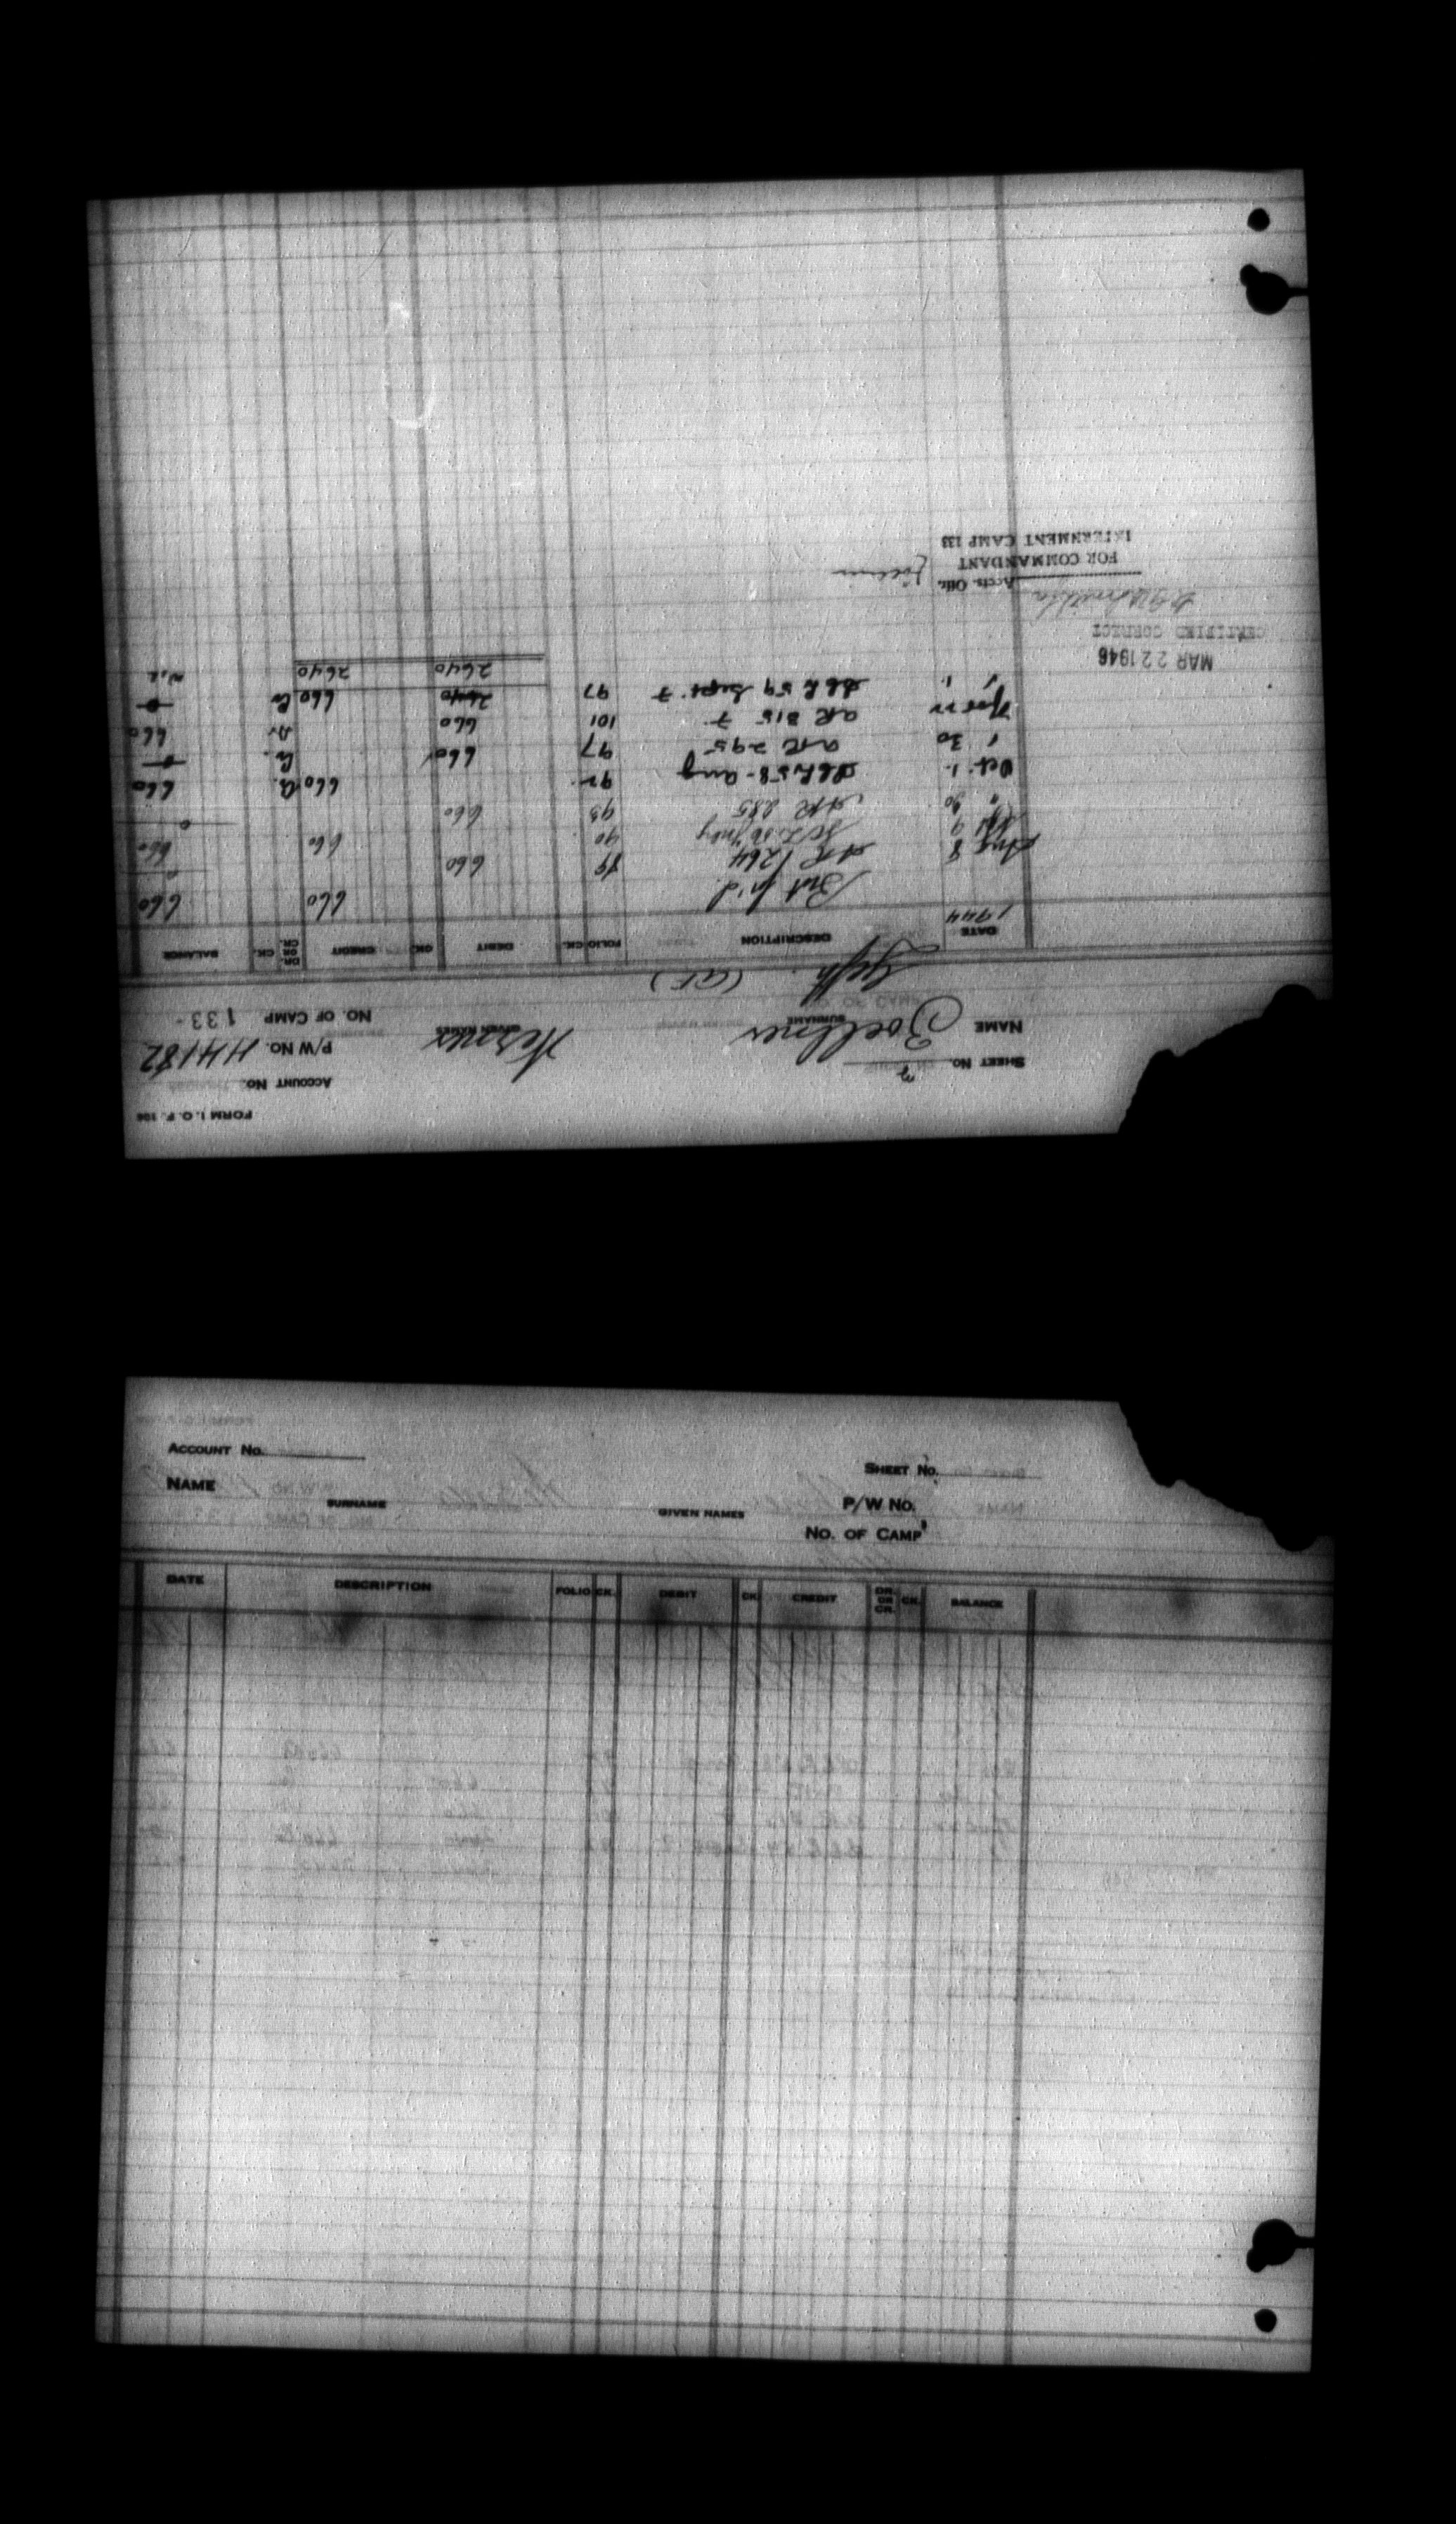 FORM I.O.F. 106
ACCOUNT No.
SHEET No. 2
P/W No. 44182
NAME Zoellner
SURNAME GIVEN NAMES
NO. OF CAMP 133-
DATE DESCRIPTION FOLIO CK. DEBIT CK. CREDIT DR. OR CR. CK. BALANCE
1944 Brt f'd. 660 660
Aug 8 AR 1264 89 660 0
9 90 660 660
" 30 AR 285 95 660 0
Oct. 1. 58 - Aug 92 660 Cr. 660
" 30 AR 295 97 660 Cr. 0
Nov 22 AR 315 7. 101 660 Dr 660
" 1. 59 Sept. 7 97 2640 660 Cr 0
2640 2640 Nil
MAR 22 1946
CERTIFIED CORRECT
Accts. Offr.
FOR COMMANDANT
INTERNMENT CAMP 133
ACCOUNT No.
SHEET No.
NAME
SURNAME GIVEN NAMES
P/W No.
No. OF CAMP
DATE DESCRIPTION FOLIO CK. DEBIT CK. CREDIT DR. OR CR. CK. BALANCE